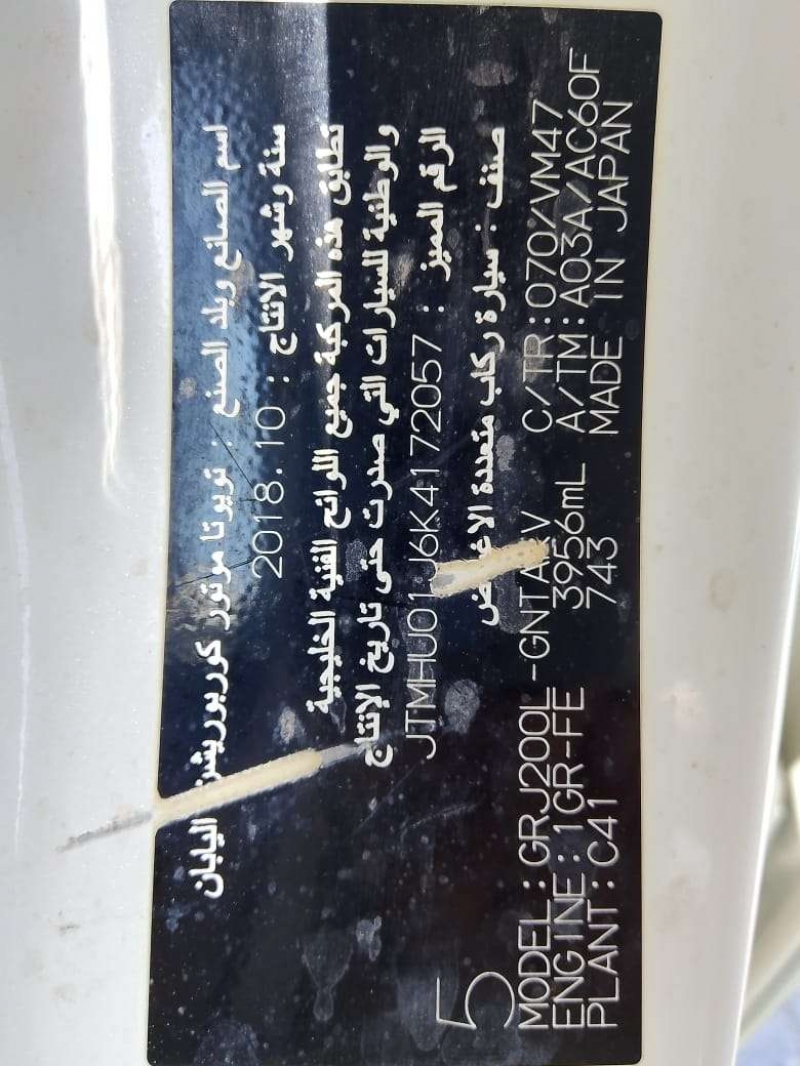 اسم الصانع وبلد الصنع : تويوتا موتور كوربوريشن اليابان
سنة وشهر الانتاج : 2018.10
تطابق هذه المركبة جميع اللوائح الفنية الخليجية
والوطنية للسيارات التي صدرت حتى تاريخ الإنتاج
الرقم المميز : JTMHU01J6K4172057
صنف : سيارة ركاب متعددة الاغراض
5
MODEL:GRJ200L-GNTAKV C/TR:070/VM47
ENGINE:1GR-FE 3956mL A/TM:A03A/AC60F
PLANT:C41 743 MADE IN JAPAN